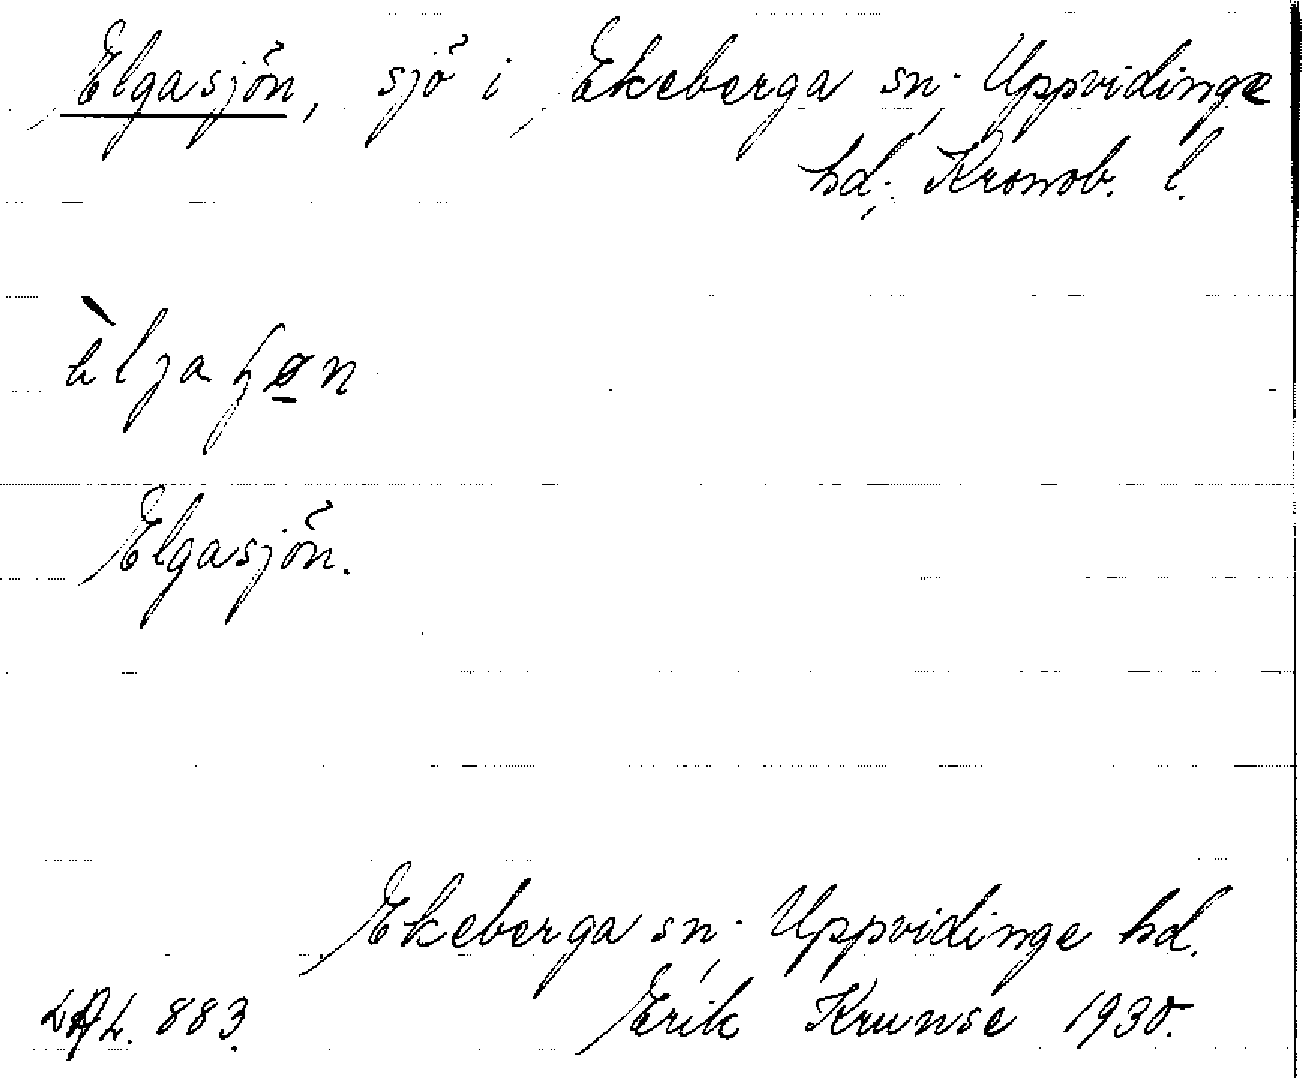 Elgasjön, sjö i Ekeberga sn; Uppvidinge
hd; Kronob. l.
Elgasjön.
Ekeberga sn; Uppvidinge hd.
883. Erik Krunse 1930.